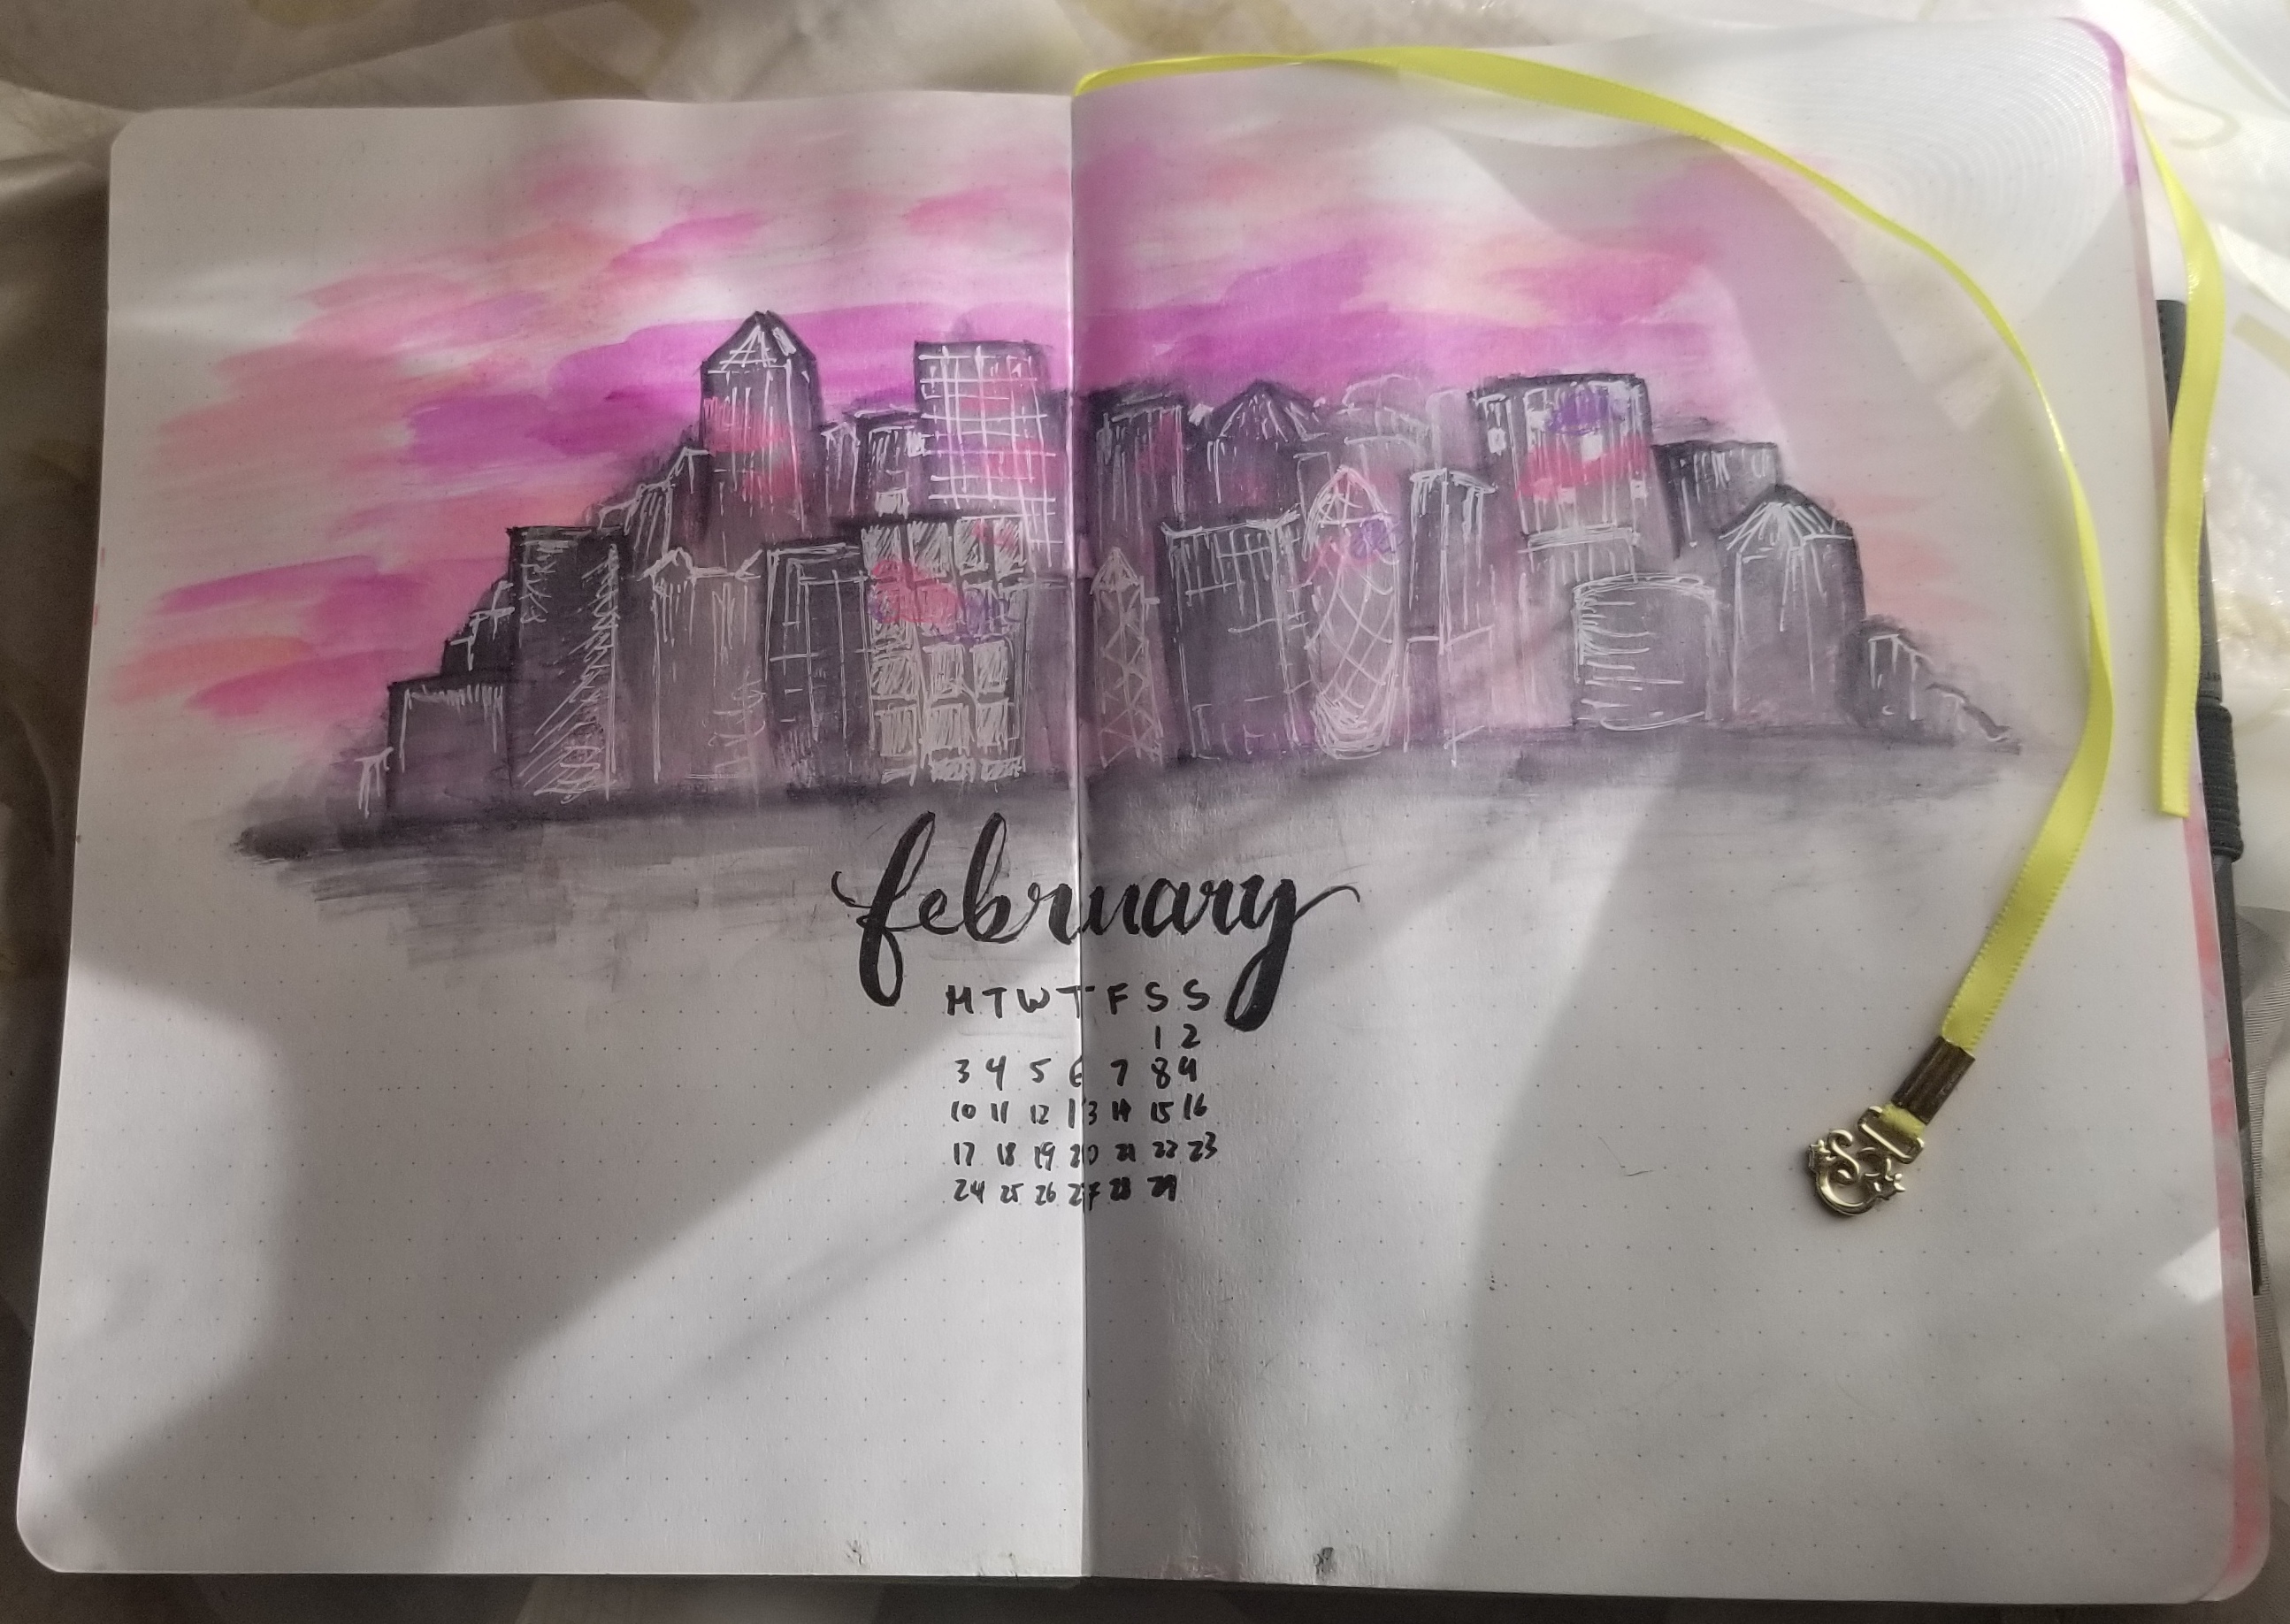 february
M T W T F S S
1 2
3 4 5 6 7 8 9
10 11 12 13 14 15 16
17 18 19 20 21 22 23
24 25 26 27 28 29